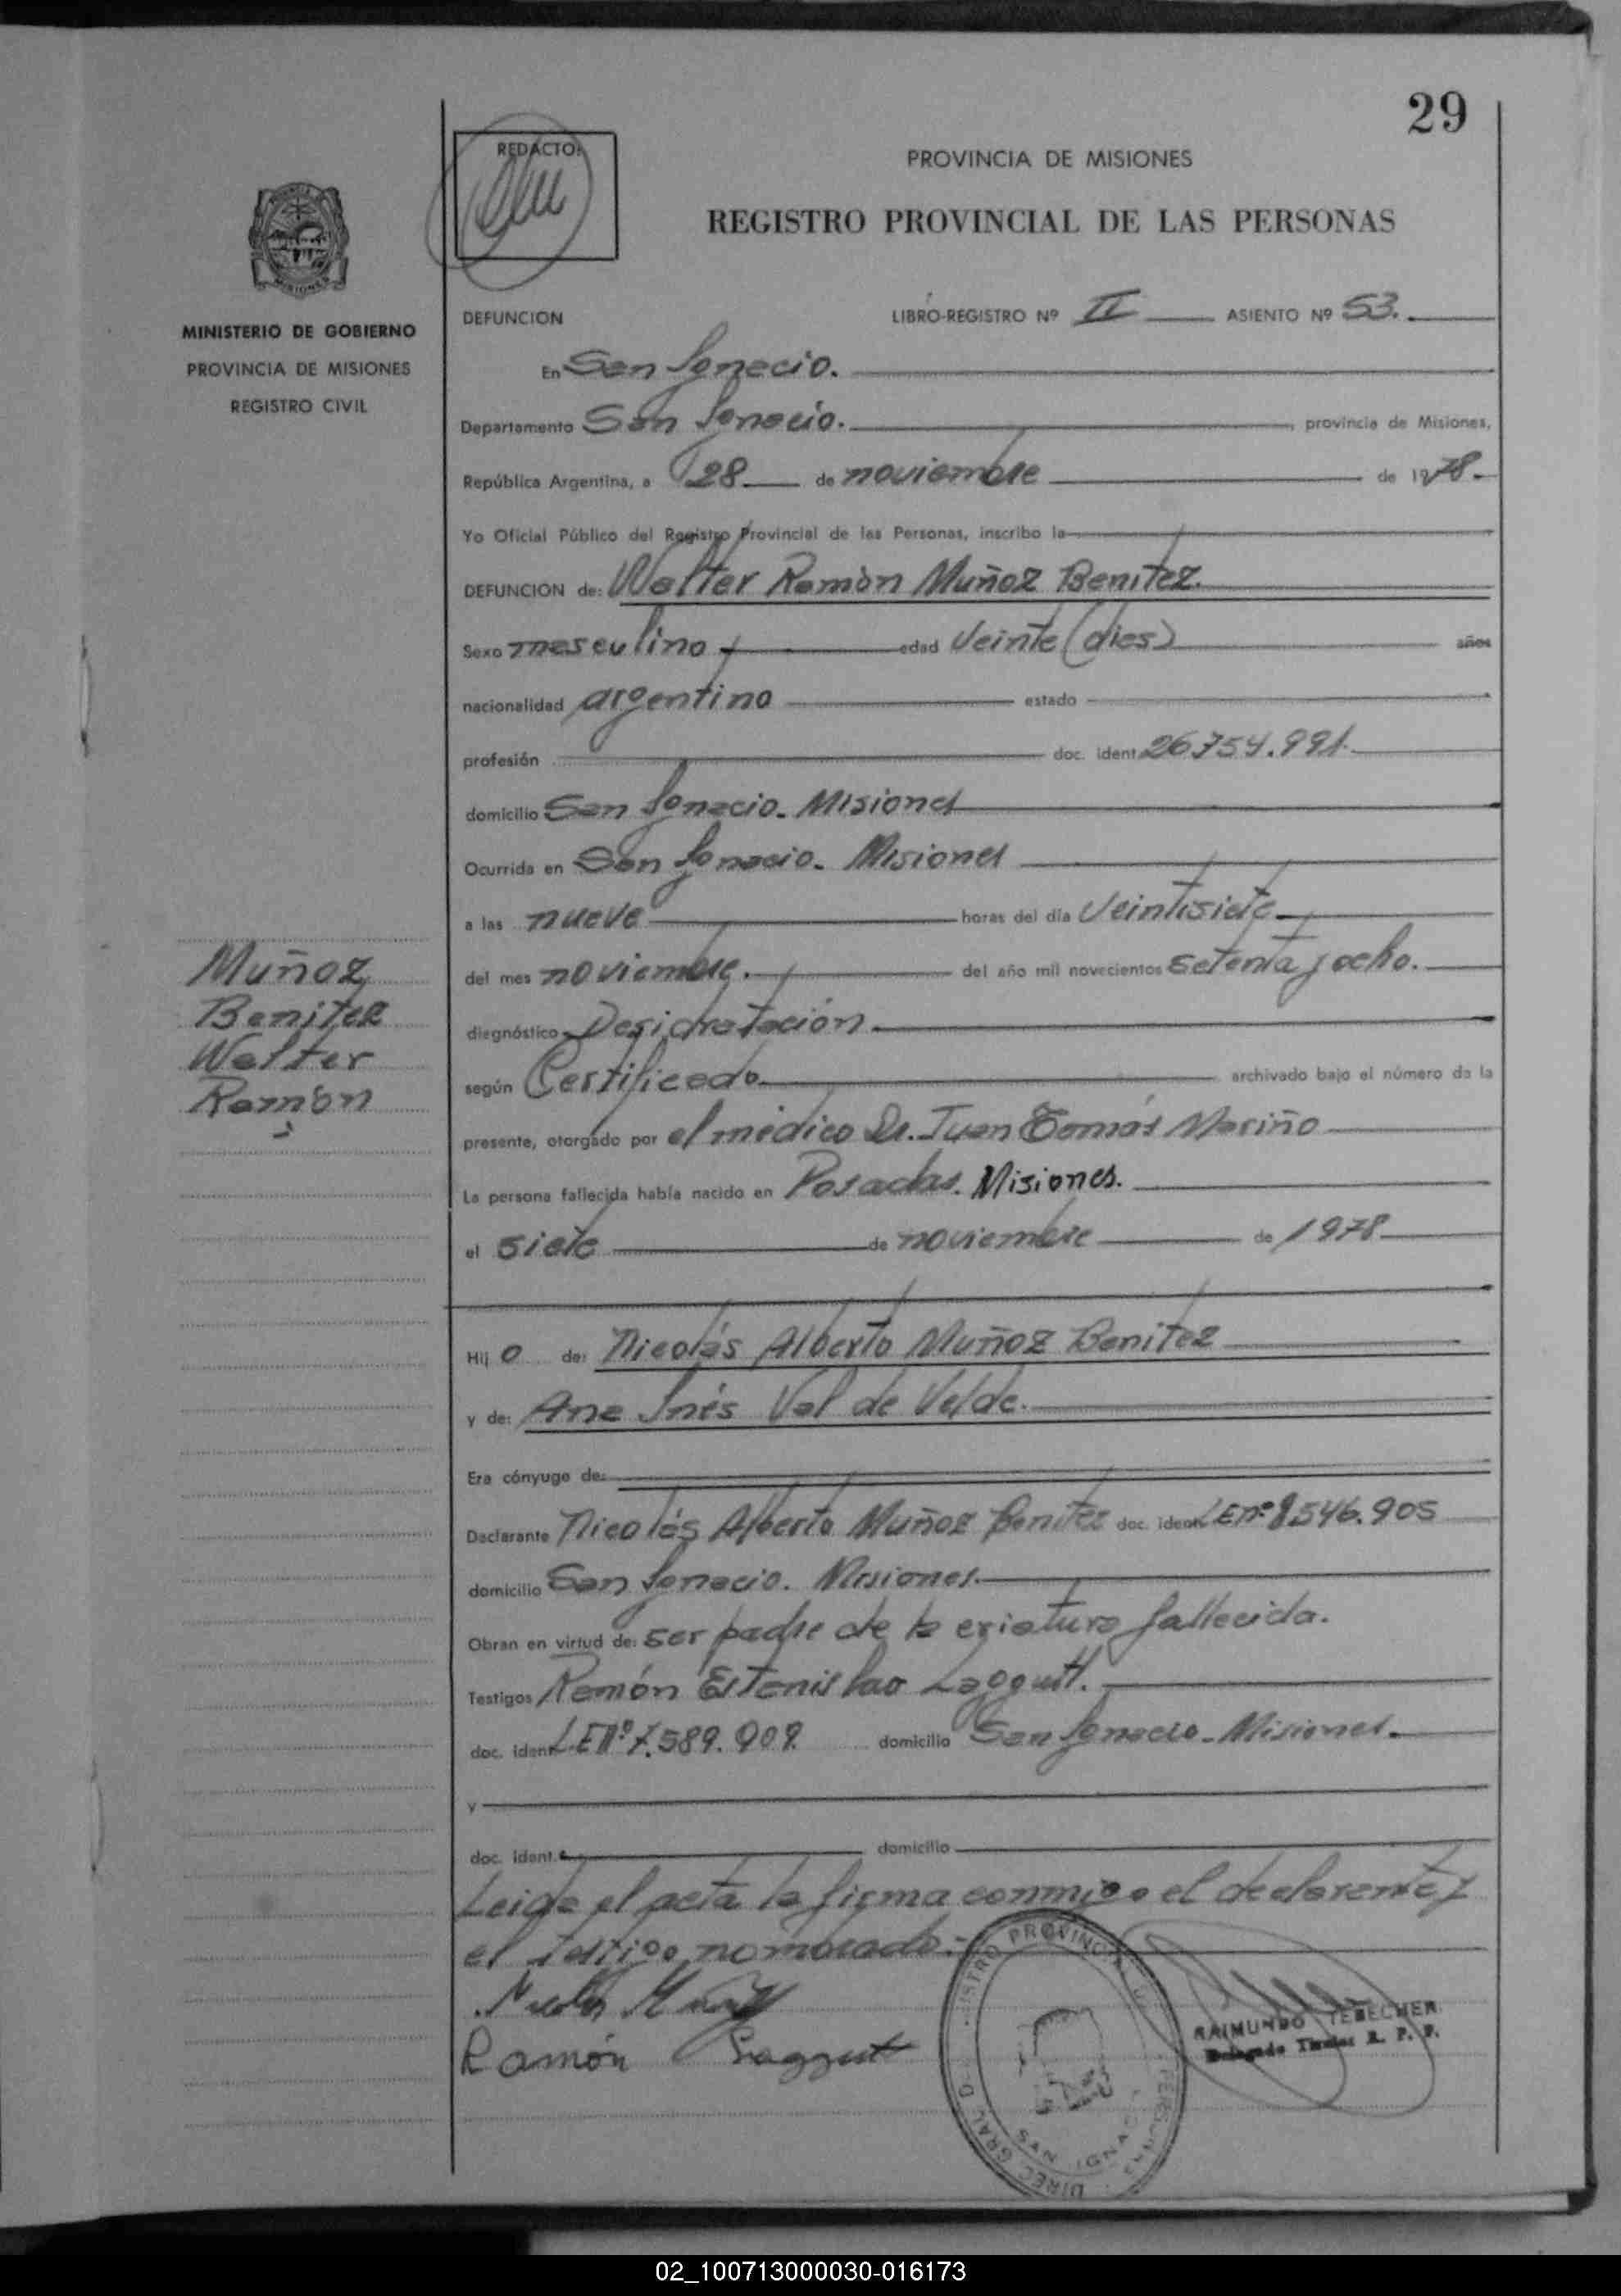 29
REDACTO:
PROVINCIA DE MISIONES
REGISTRO PROVINCIAL DE LAS PERSONAS
MISIONES
MINISTERIO DE GOBIERNO
PROVINCIA DE MISIONES
REGISTRO CIVIL
DEFUNCION LIBRO-REGISTRO Nº II ASIENTO Nº 53.
En San Ignacio.
Departamento San Ignacio. provincia de Misiones,
República Argentina, a 28 de noviembre de 1978.-
Yo Oficial Público del Registro Provincial de las Personas, inscribo la
DEFUNCION de: Walter Ramòn Muñoz Benitez.
Sexo masculino edad Veinte (dias) años
nacionalidad argentino estado
profesión doc. ident. 26.754.991.
domicilio San Ignacio. Misiones
Ocurrida en San Ignacio. Misiones
a las nueve horas del día Veintisiete
del mes noviembre. del año mil novecientos setenta y ocho.
diagnóstico Desidratación.
según Certificado archivado bajo el número de la
presente, otorgado por el médico Dr. Juan Tomás Mariño
La persona fallecida había nacido en Posadas. Misiones.
el siete de noviembre de 1978
Muñoz
Benitez
Walter
Ramòn
Hij o de: Nicolás Alberto Muñoz Benitez
y de: Ana Inés Val de Velde.
Era cónyuge de:
Declarante Nicolás Alberto Muñoz Benitez doc. ident. LE nº 8.546.905
domicilio San Ignacio. Misiones.
Obran en virtud de: ser padre de la criatura fallecida.
Testigos Ramón Estanislao Laggutt.
doc. ident. LE Nº 7.589.909. domicilio San Ignacio. Misiones.
y
doc. ident. domicilio
Leida el acta la firma conmigo el declarante y
el testigo nombrado.-
Ramón Laggutt
RAIMUNDO TEBECHER
Delegado Titular R. P. P.
DIREC. GRAL. D
SAN IGNACI
02_100713000030-016173